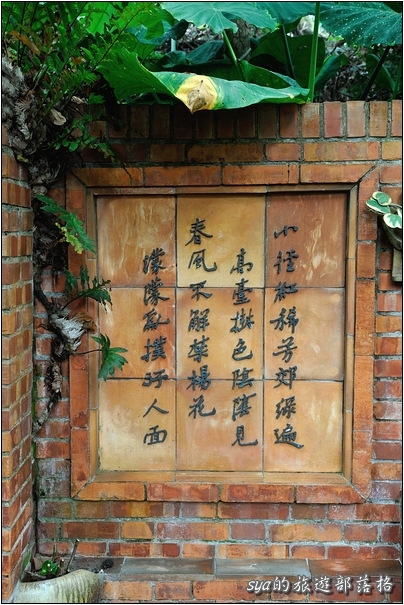 小徑紅稀芳郊綠遍
高臺樹色陰陰見
春風不解禁楊花
濛濛亂撲行人面
sya的旅遊部落格